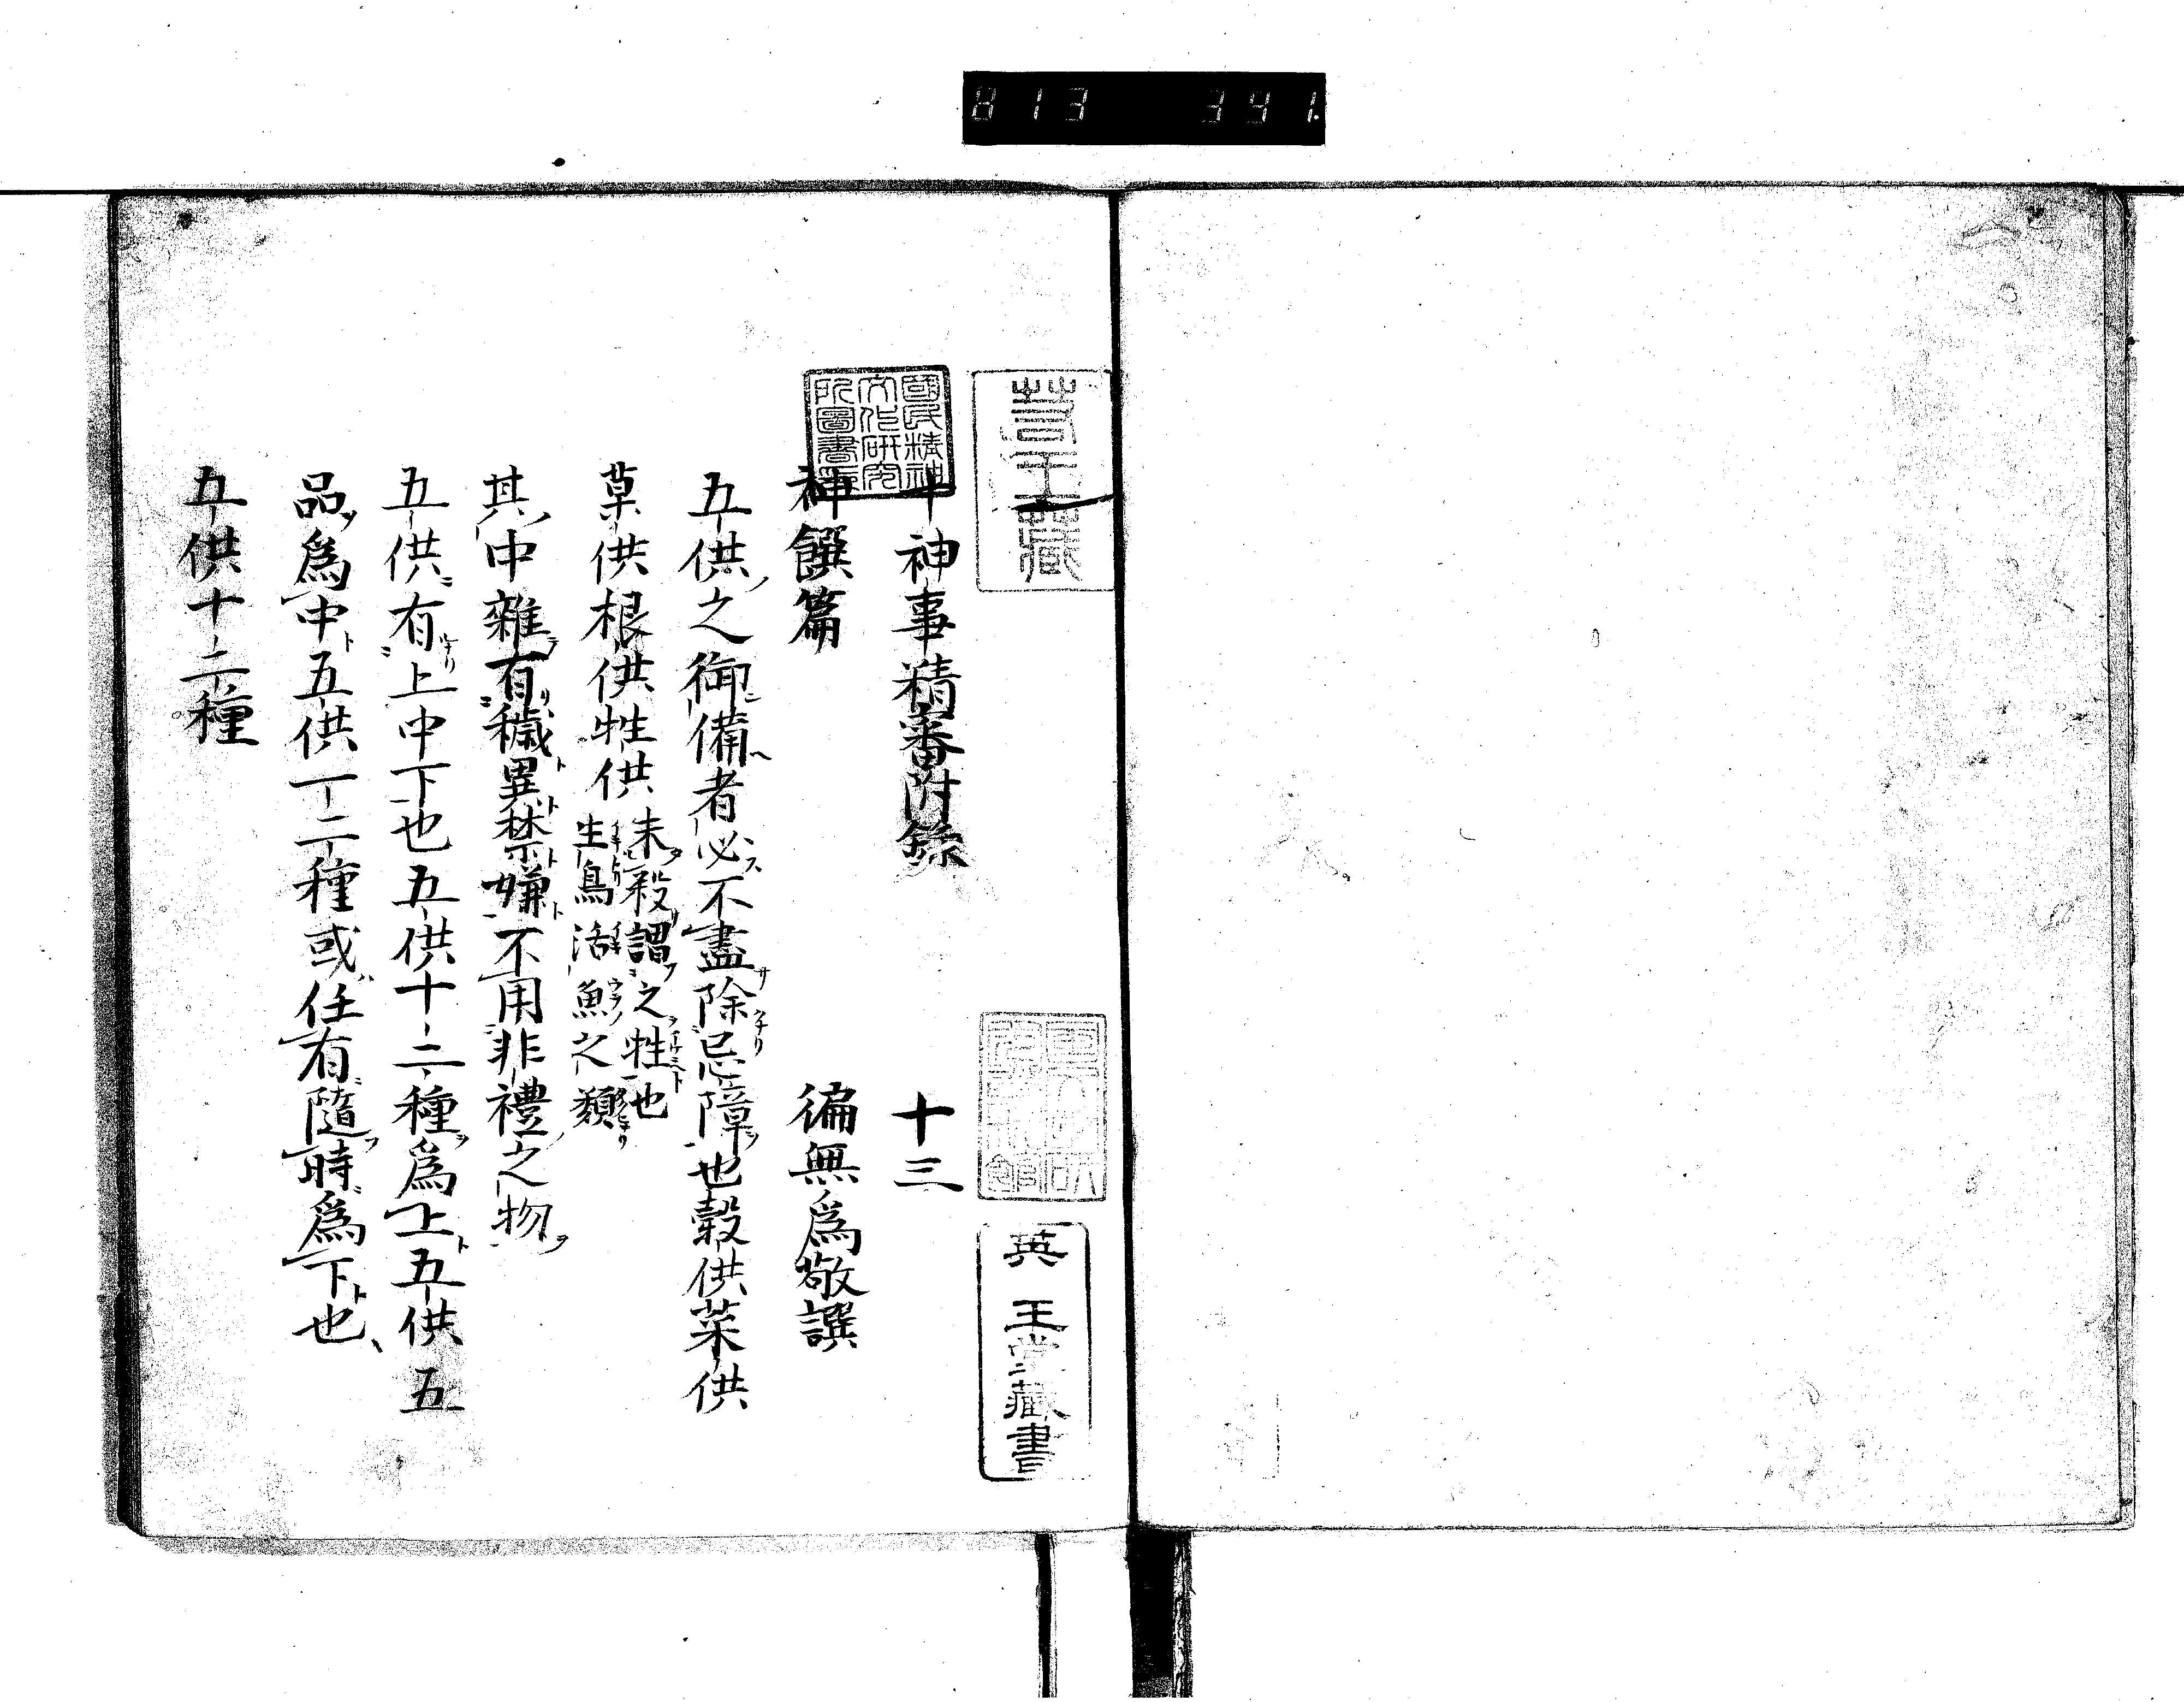 813 341.
英王堂藏書
國民精神
文化研究
所圖書
神事精番附錄 十三
神饌篇 徧無爲敬譔
五供之御備者必不盡除忌障也穀供菜供
草供根供牲供 未殺謂之牲也
生鳥活魚之類
其中雜有穢異禁嫌不用非禮之物
五供有上中下也五供十二種爲上五供五
品爲中五供一二種或任有隨時爲下也
五供十二種